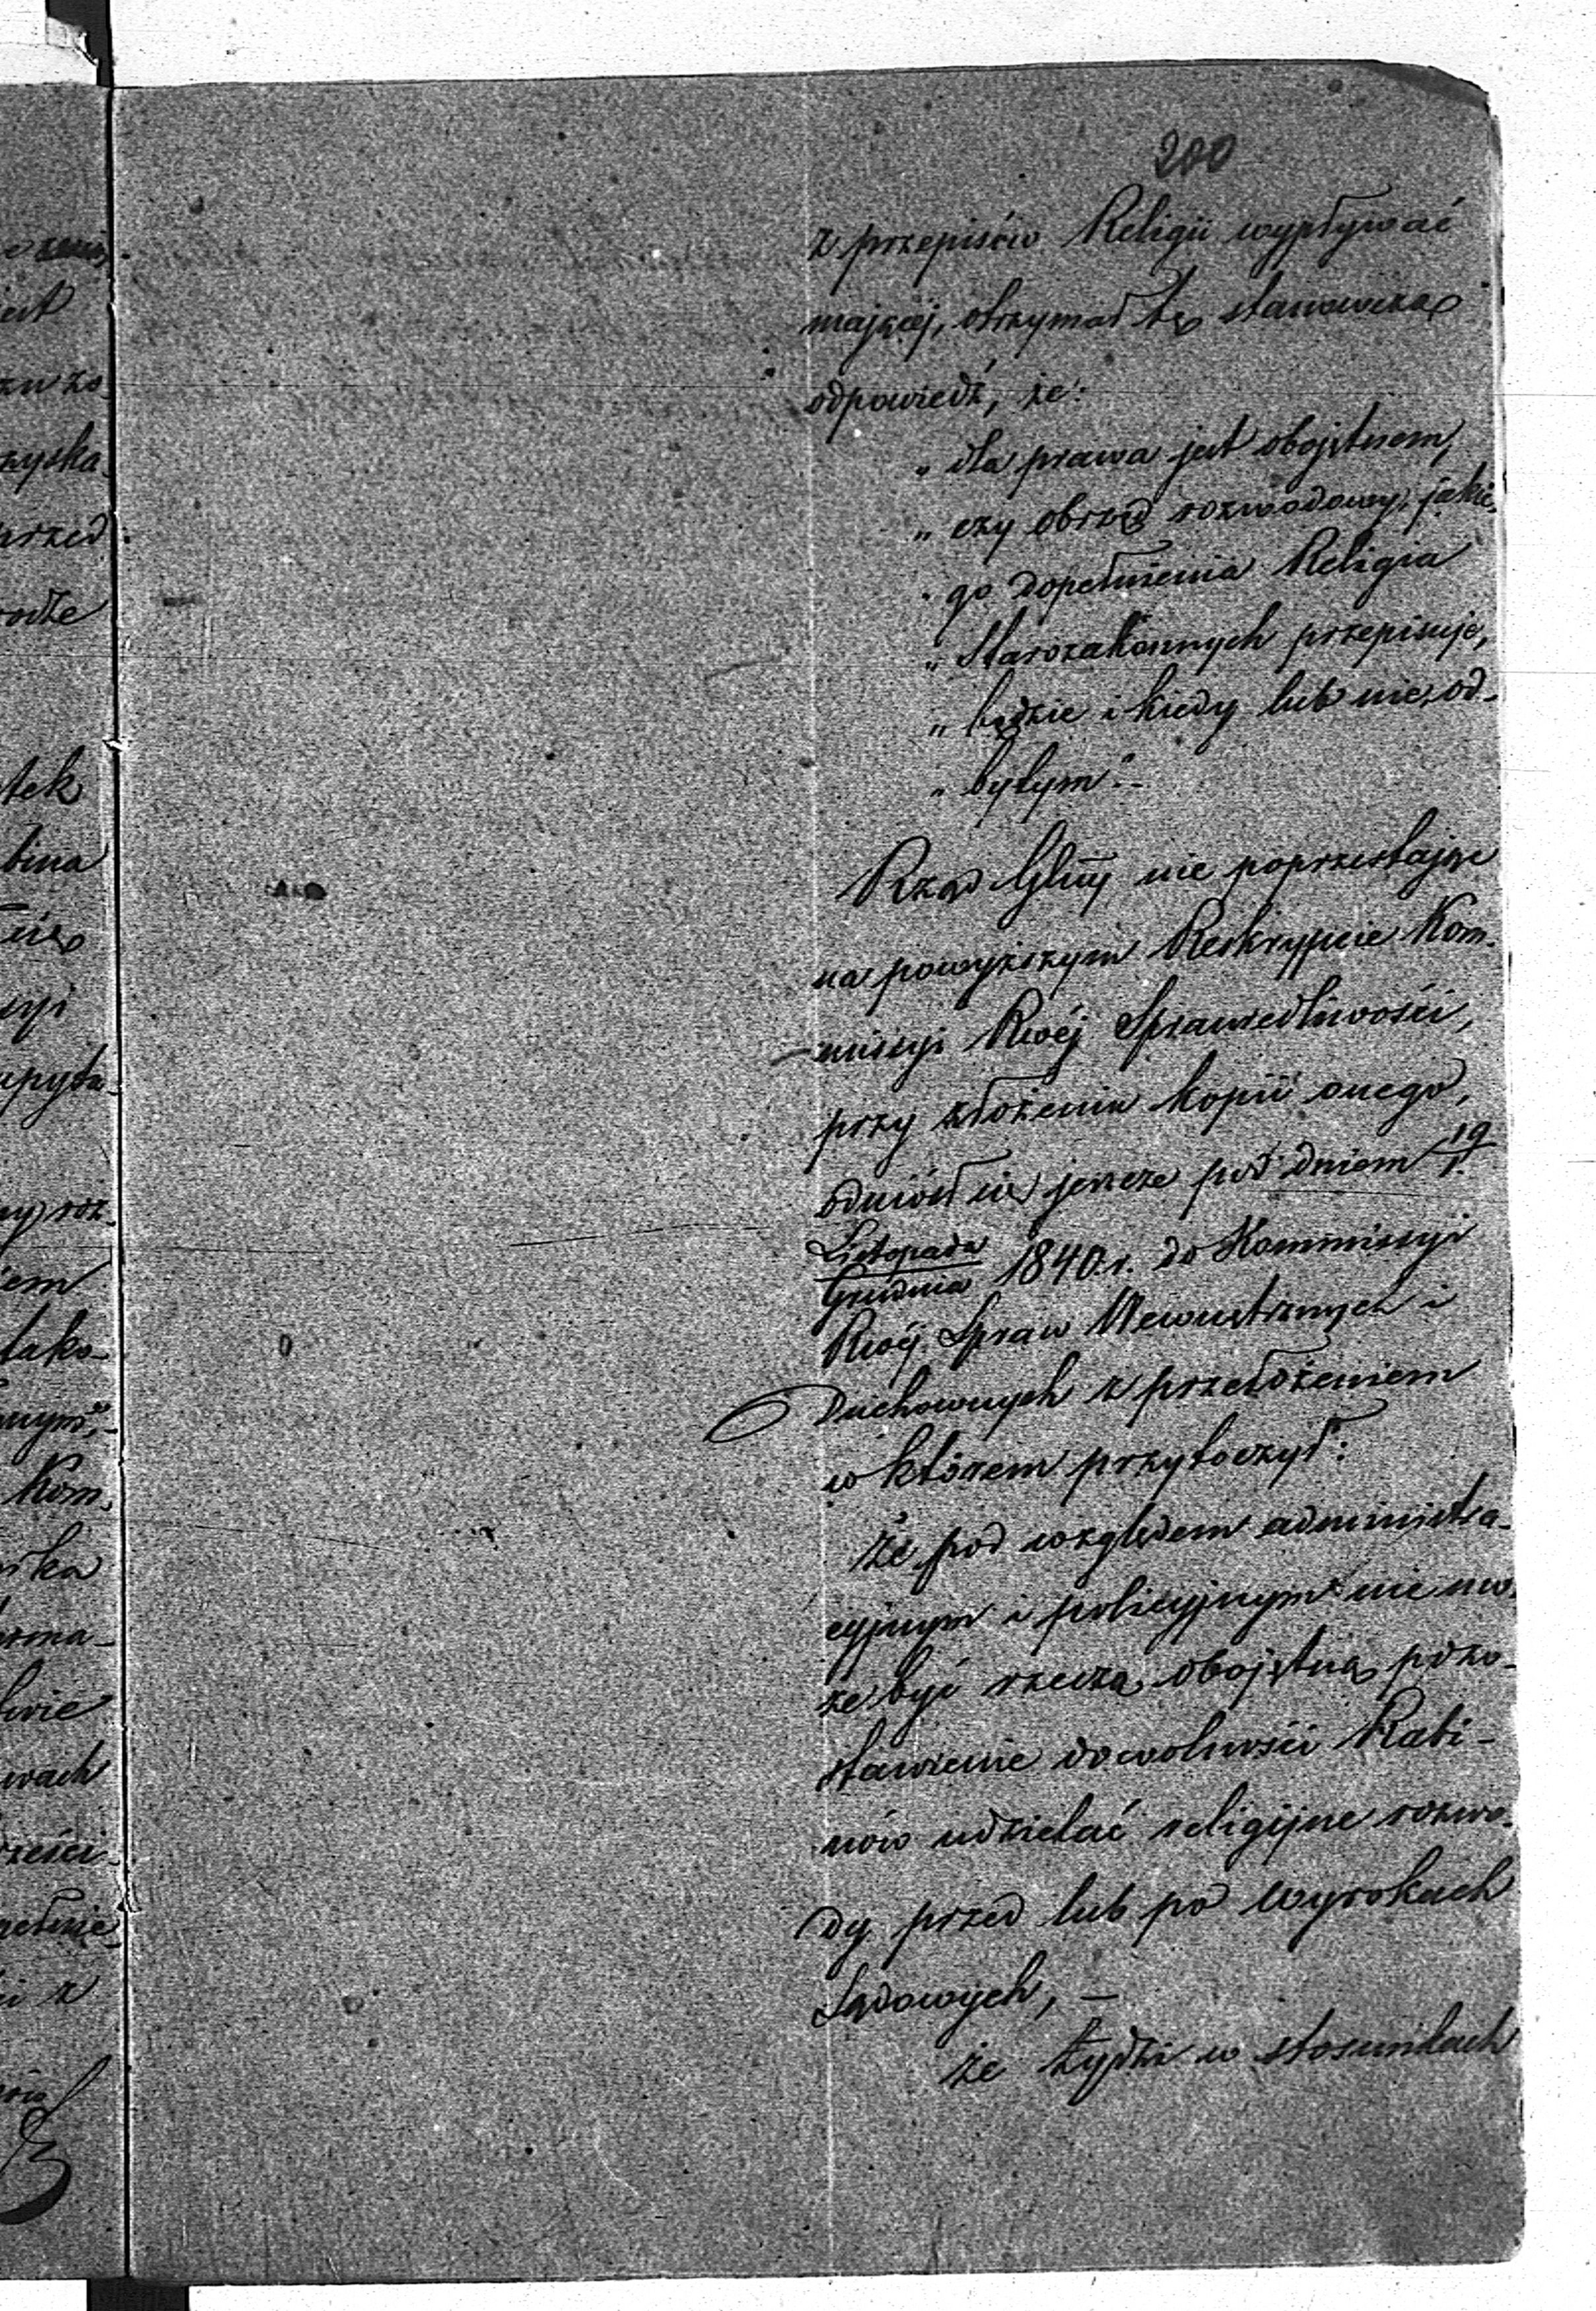 200
z przepisów Religii wypływać
mającej, otrzymał tę stanowczą
odpowiedź, że:
„ dla prawa jest obojętnem,
„ czy obrząd rozwodowy, jakie-
„ go dopełnienia Religia
„ Starozakonnych przepisuje,
„ będzie i kiedy lub nie, od-
„ bytym".-
Rząd Glny nie poprzestając
na powyższym Reskrypcie Kom-
missyi Rwéj Sprawiedliwości,
przy złożeniu kopii onego,
odniósł się jeszcze pod dniem 19/1.
Listopada/Grudnia 1840. r. do Kommissyi
Rwéj Spraw Wewnętrznych i
Duchownych z przełożeniem
w którem przytoczył:
że pod względem administra-
cyjnym i policyjnym nie mo-
że być rzeczą obojętną pozo-
stawienie dowolności Rabi-
nów udzielać religijne rozwo-
dy przed lub po wyrokach
Sądowych, —
że Żydzi w stosunkach
ist
zyska-
przed
tek
bina
ssyi
apyta-
ny roz-
iem
tako-
Kom-
wach